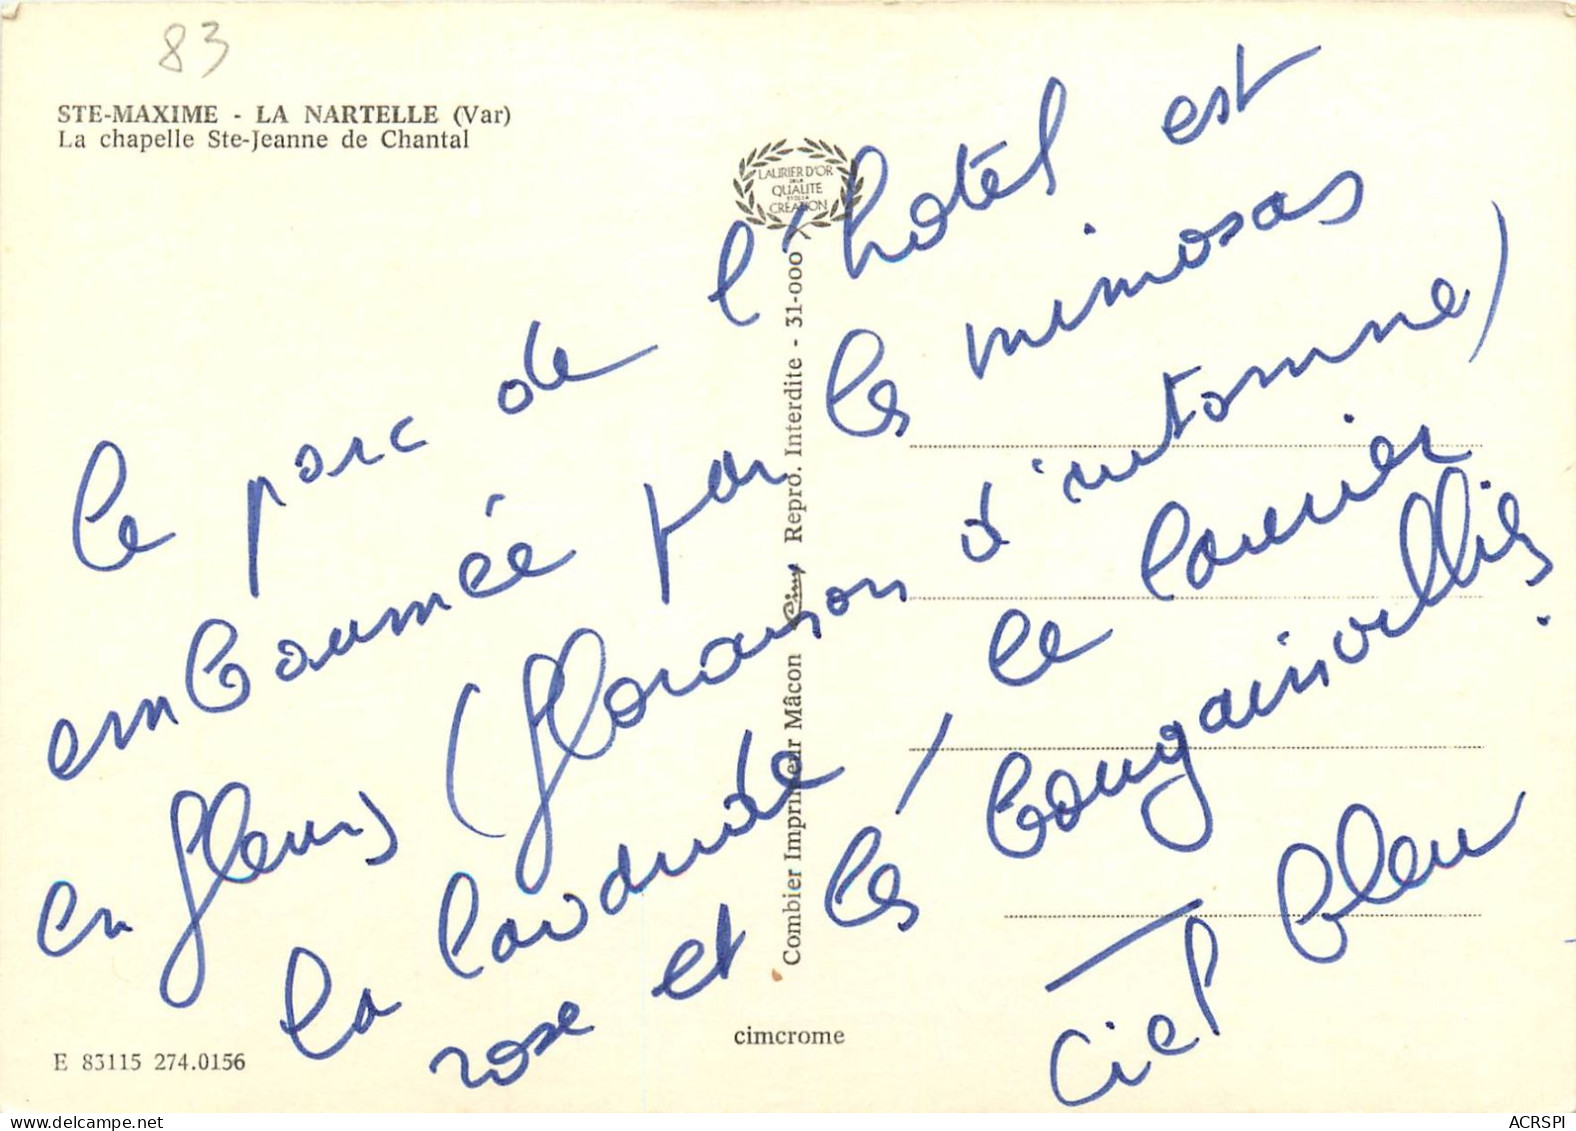 83
STE-MAXIME - LA NARTELLE (Var)
La chapelle Ste-Jeanne de Chantal
LAURIER D'OR
DE LA
QUALITE
ET DE LA
CREATION
Le parc de l'hotel est
embaumée par les mimosas
en fleurs (floraison d'automne)
la lavande, le laurier
rose et les bougainvilliés.
Ciel bleu
Combier Imprimeur Mâcon Cim Repro. Interdite - 31-000
cimcrome
E 83115 274.0156
ACRSPI